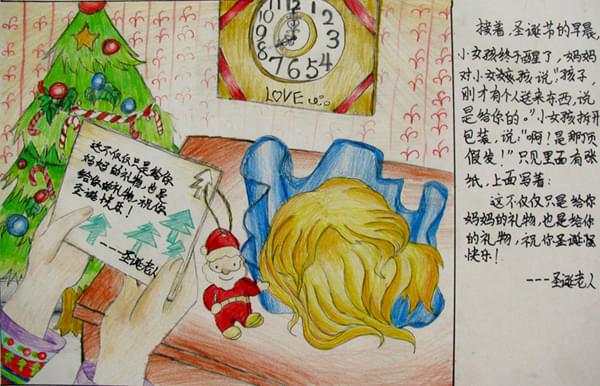 LOVE
这不仅仅只是给你
妈妈的礼物,也是
给你的礼物,祝你
圣诞快乐!
---圣诞老人
接着,圣诞节的早晨,
小女孩终于醒了,妈妈
对小女孩说:"孩子,
刚才有个人送来东西,说
是给你的。"小女孩拆开
包装,说:"啊!是那顶
假发!"只见里面有张
纸,上面写着:
这不仅仅只是给你
妈妈的礼物,也是给你
的礼物,祝你圣诞
快乐!
---圣诞老人